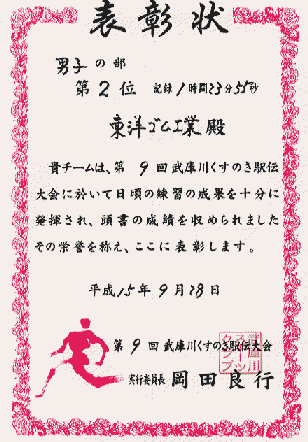 表彰状
男子の部
第2位 記録1時間23分55秒
東洋ゴム工業殿
貴チームは、第9回武庫川くすのき駅伝
大会に於いて日頃の練習の成果を十分に
発揮され、頭書の成績を収められました
その栄誉を称え、ここに表彰します。
平成15年9月28日
第9回武庫川くすのき駅伝大会
実行委員長 岡田良行